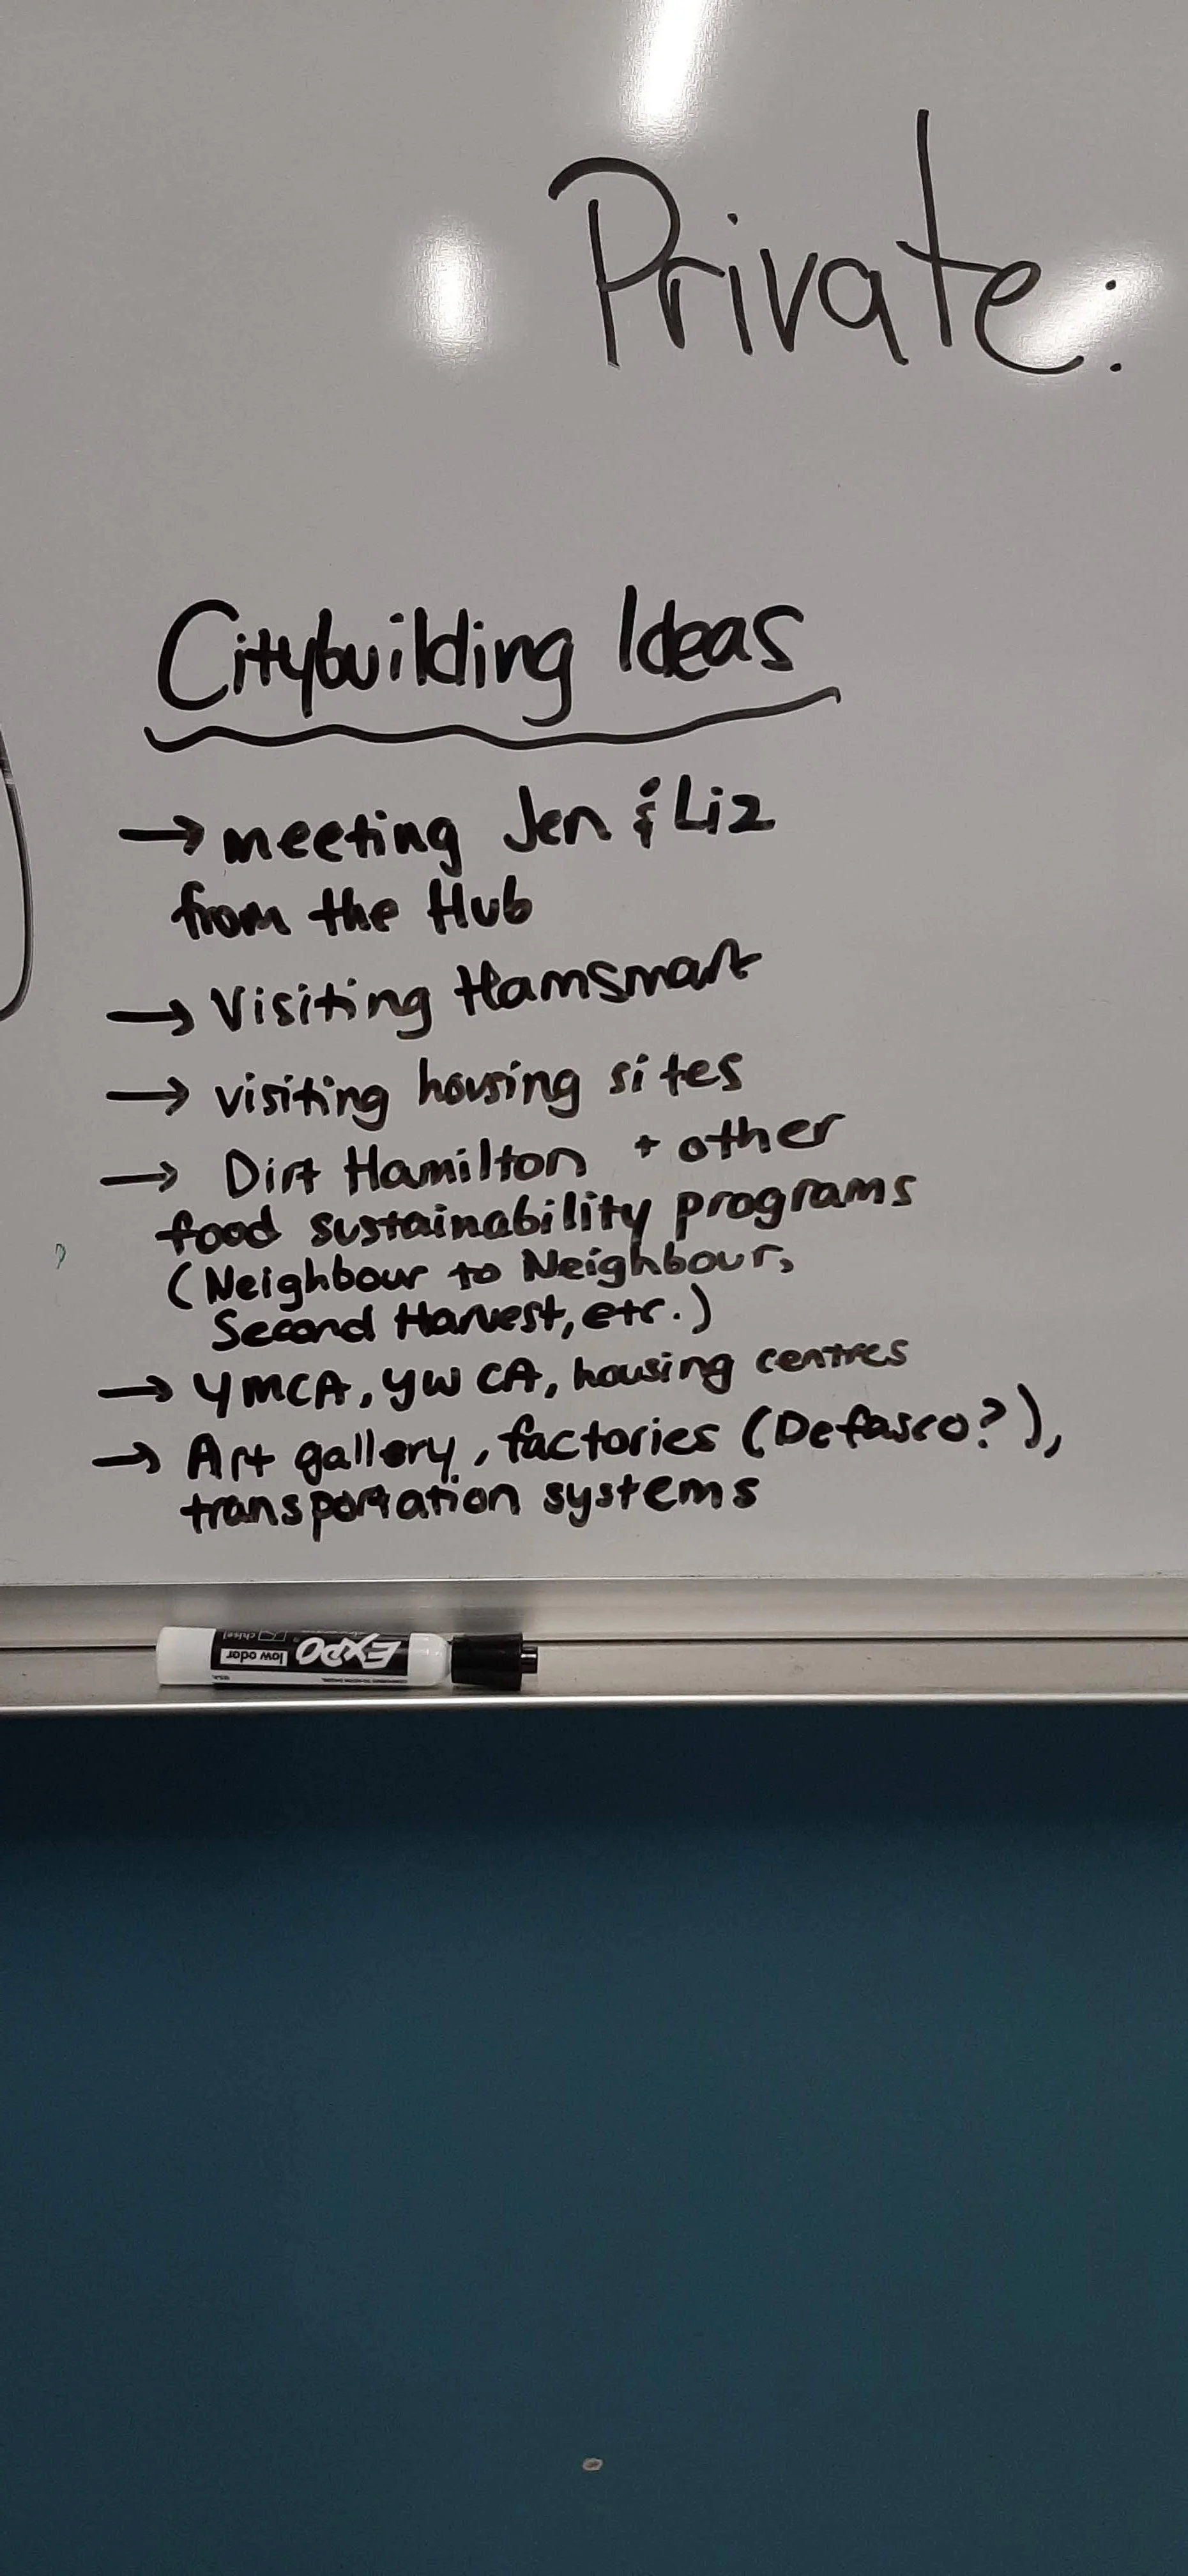 Private:
Citybuilding Ideas
→ meeting Jen & Liz
from the Hub
→ Visiting HamSmart
→ visiting housing sites
→ Dirt Hamilton + other
food sustainability programs
(Neighbour to Neighbour,
Second Harvest, etc.)
→ YMCA, YWCA, housing centres
→ Art gallery, factories (Defasco?),
transportation systems
EXPO
low odor
chisel